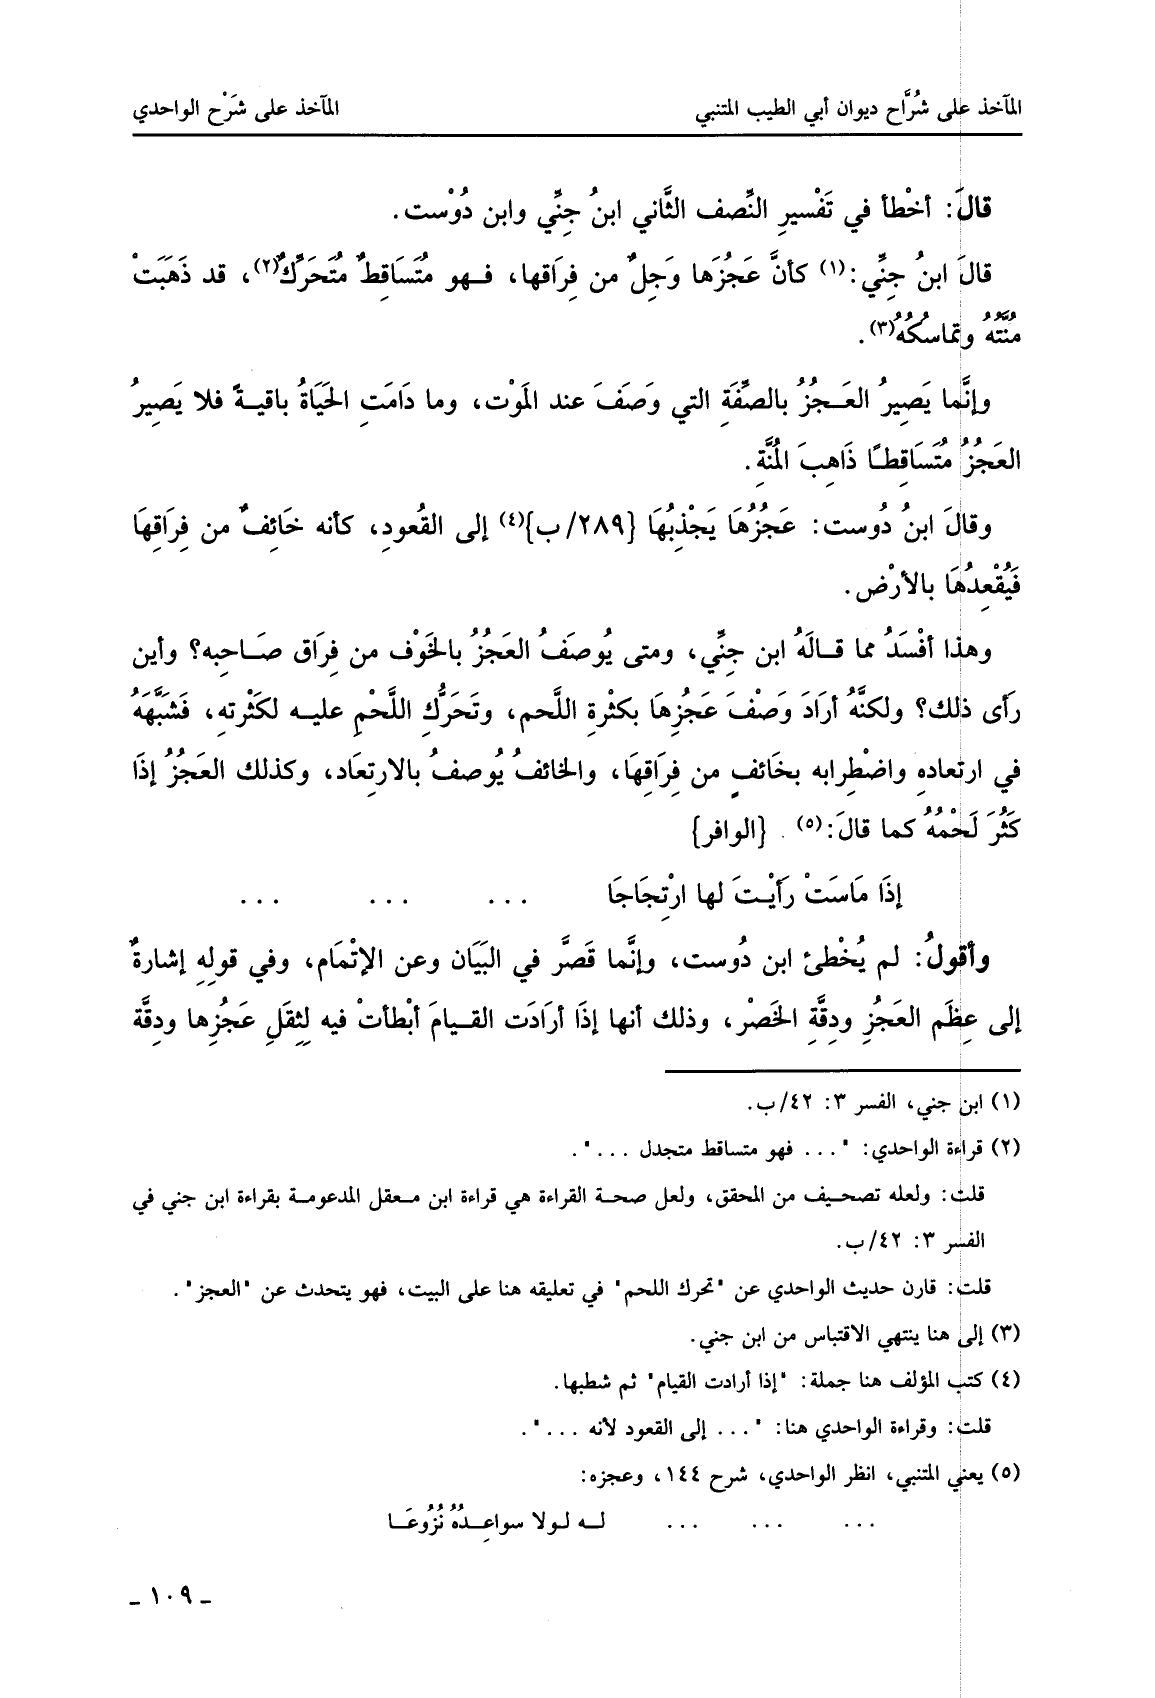 المآخذ على شُرَّاح ديوان أبي الطيب المتنبي المآخذ على شَرْح الواحدي
قالَ: أخْطأ في تَفْسيرِ النِّصف الثَّاني ابنُ جِنِّي وابن دُوْست.
قالَ ابنُ جِنِّي:(١) كأنَّ عَجُزَها وَجِلٌ من فِراَقها، فـهو مُتَسَاقِطٌ مُتَحَرِّكٌ(٢)، قد ذَهَبَتْ
مُنَّتُهُ وتَماسُكُهُ(٣).
وإنَّما يَصِيرُ العَـجُزُ بالصِّفَةِ التي وَصَفَ عند المَوْت، وما دَامَتِ الحَيَاةُ باقيـةً فلا يَصِيرُ
العَجُزُ مُتَسَاقِطـًا ذَاهِبَ المُنَّةِ.
وقالَ ابنُ دُوست: عَجُزُهَا يَجْذِبُهَا {٢٨٩/ب}(٤) إلى القُعودِ، كأنه خَائِفٌ من فِرِاَقِهَا
فَيُقْعِدُهَا بالأرْضِ.
وهذا أفْسَدُ مما قـالَهُ ابن جِنِّي، ومتى يُوصَفُ العَجُزُ بالخَوْف من فِراَق صَـاحِبه؟ وأين
رَأى ذلك؟ ولكنَّهُ أرَادَ وَصْفَ عَجُزِهَا بكثْرةِ اللَّحم، وتَحَرُّكِ اللَّحْمِ عليـه لكَثْرته، فَشَبَّهَهُ
في ارتعادهِ واضْطِرابه بخَائفٍ من فِرَاقِهَا، والخائفُ يُوصفُ بالارتِعَاد، وكذلك العَجُزُ إذَا
كَثُرَ لَحْمُهُ كما قالَ:(٥) {الوافر}
إذَا مَاسَتْ رَأَيْـتَ لها ارْتِجَاجَا ... ... ...
وأقولُ: لم يُخْطئ ابن دُوست، وإنَّما قَصَّر في البَيَان وعن الإتْمَام، وفي قولهِ إشارةٌ
إلى عِظَم العَجُزِ ودِقَّةِ الخَصْر، وذلك أنها إذَا أرَادَت القـيامَ أبْطأتْ فيه لِثِقَلِ عَجُزِها ودِقَّة
(١) ابن جني، الفسر ٣: ٤٢/ب.
(٢) قراءة الواحدي: "... فهو متساقط متجدل ...".
قلت: ولعله تصحـيف من المحقق، ولعل صحـة القراءة هي قراءة ابن مـعقل المدعومـة بقراءة ابن جني في
الفسر ٣: ٤٢/ب.
قلت: قارن حديث الواحدي عن "تحرك اللحم" في تعليقه هنا على البيت، فهو يتحدث عن "العجز".
(٣) إلى هنا ينتهي الاقتباس من ابن جني.
(٤) كتب المؤلف هنا جملة: "إذا أرادت القيام" ثم شطبها.
قلت: وقراءة الواحدي هنا: "... إلى القعود لأنه ...".
(٥) يعني المتنبي، انظر الواحدي، شرح ١٤٤، وعجزه:
... ... ... لـه لـولا سواعِـدُهُ نُزُوعَـا
ـ ١٠٩ ـ